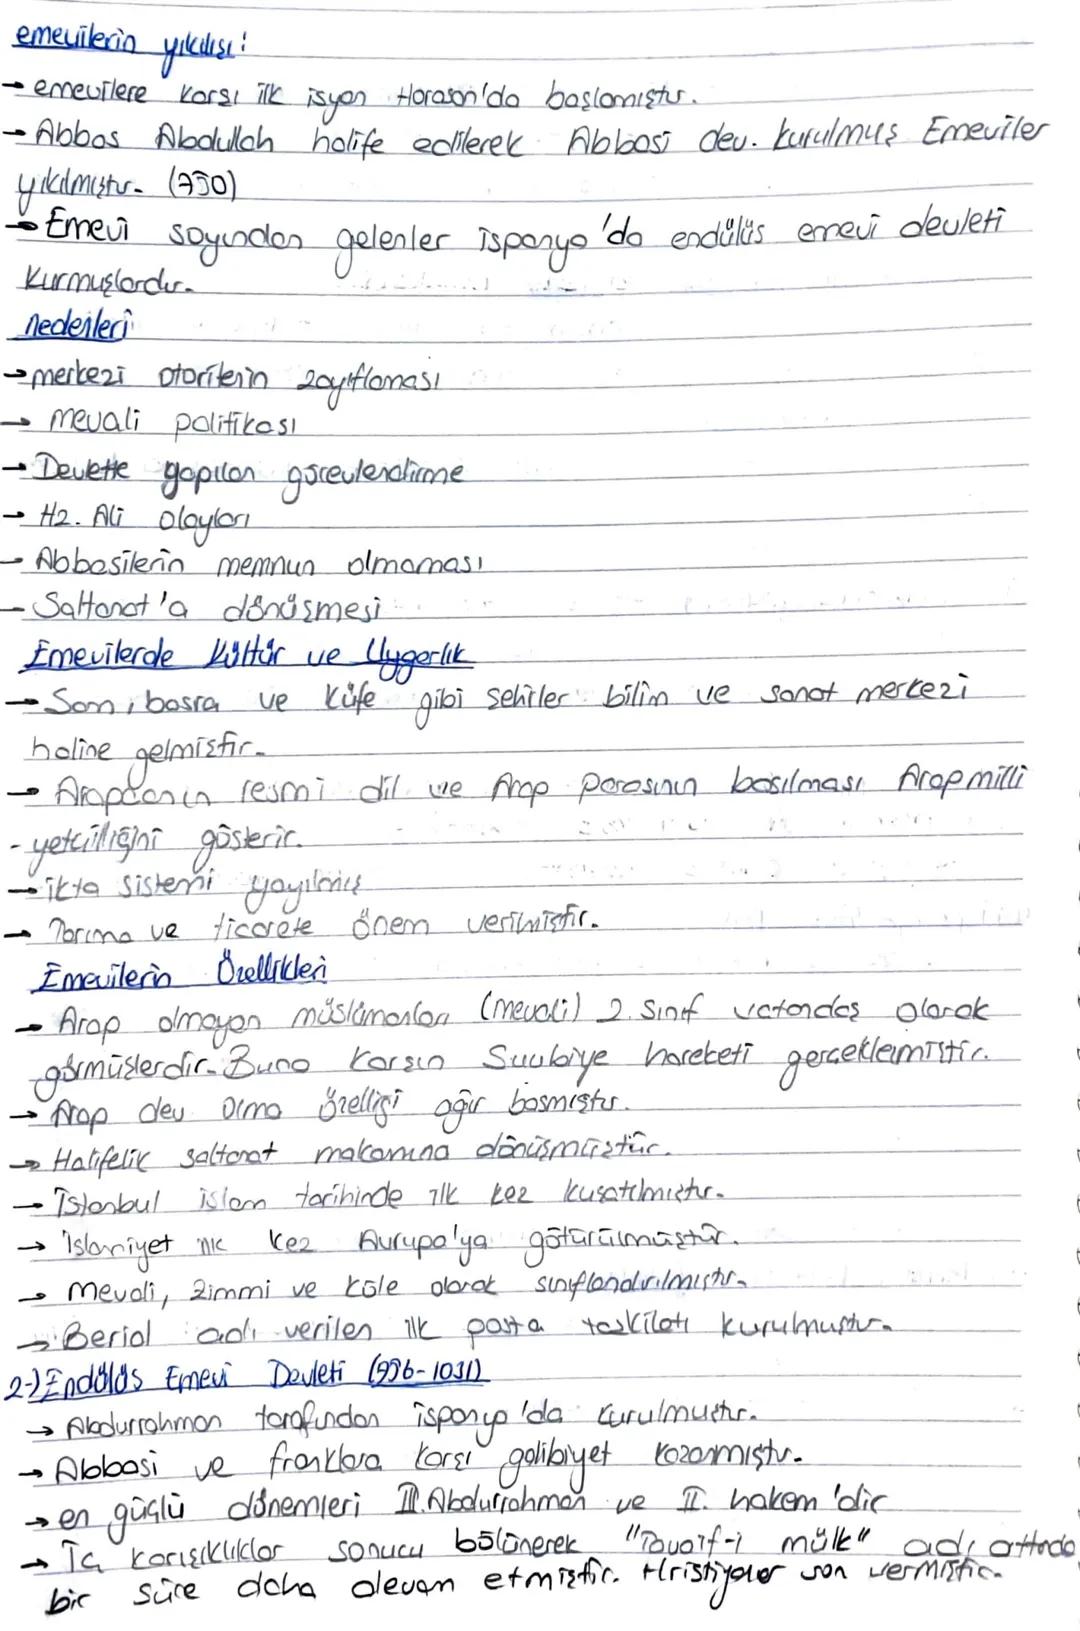 emevilerin yıkılışı:
→ emevilere karşı ilk isyan Horasan'da başlamıştır.
→ Abbas Abdullah halife edilerek Abbasi dev. kurulmuş Emeviler
yıkılmıştır. (750)
→ Emevi soyundan gelenler ispanya'da endülüs emevi devleti
kurmuşlardır.
nedenleri
→ merkezi otoritenin zayıflaması
→ mevali politikası
→ Devlette yapılan görevlendirme
→ Hz. Ali olayları
→ Abbasilerin memnun olmaması
→ Saltanat'a dönüşmesi
Emevilerde Kültür ve Uygarlık
→ Şam, basra ve Kûfe gibi şehirler bilim ve sanat merkezi
haline gelmiştir.
→ Arapçanın resmi dil ve Arap parasının basılması Arap milli
- yetçiliğini gösterir.
→ ikta sistemi yayılmış
→ Tarıma ve ticarete önem verilmiştir.
Emevilerin Özellikleri
→ Arap olmayan müslümanları (mevali) 2. sınıf vatandaş olarak
görmüşlerdir. Buna karşın Şuubiye hareketi gerçekleşmiştir.
→ Arap dev olma özelliği ağır basmıştır.
→ Halifelik saltanat makamına dönüşmüştür.
→ İstanbul islam tarihinde ilk kez kuşatılmıştır.
→ İslamiyet ilk kez Avrupa'ya götürülmüştür.
→ Mevali, zimmi ve köle olarak sınıflandırılmıştır.
→ Berid adı verilen ilk posta teşkilatı kurulmuştur.
2-) Endülüs Emevi Devleti (756-1031)
→ Abdurrahman tarafından ispanya'da kurulmuştur.
→ Abbasi ve franklara karşı galibiyet kazanmıştır.
→ en güçlü dönemleri III. Abdurrahman ve II. hakem'dir
→ İç karışıklıklar sonucu bölünerek "Tavaif-i mülk" adı altında
bir süre daha devam etmiştir. Hristiyanlar son vermiştir.